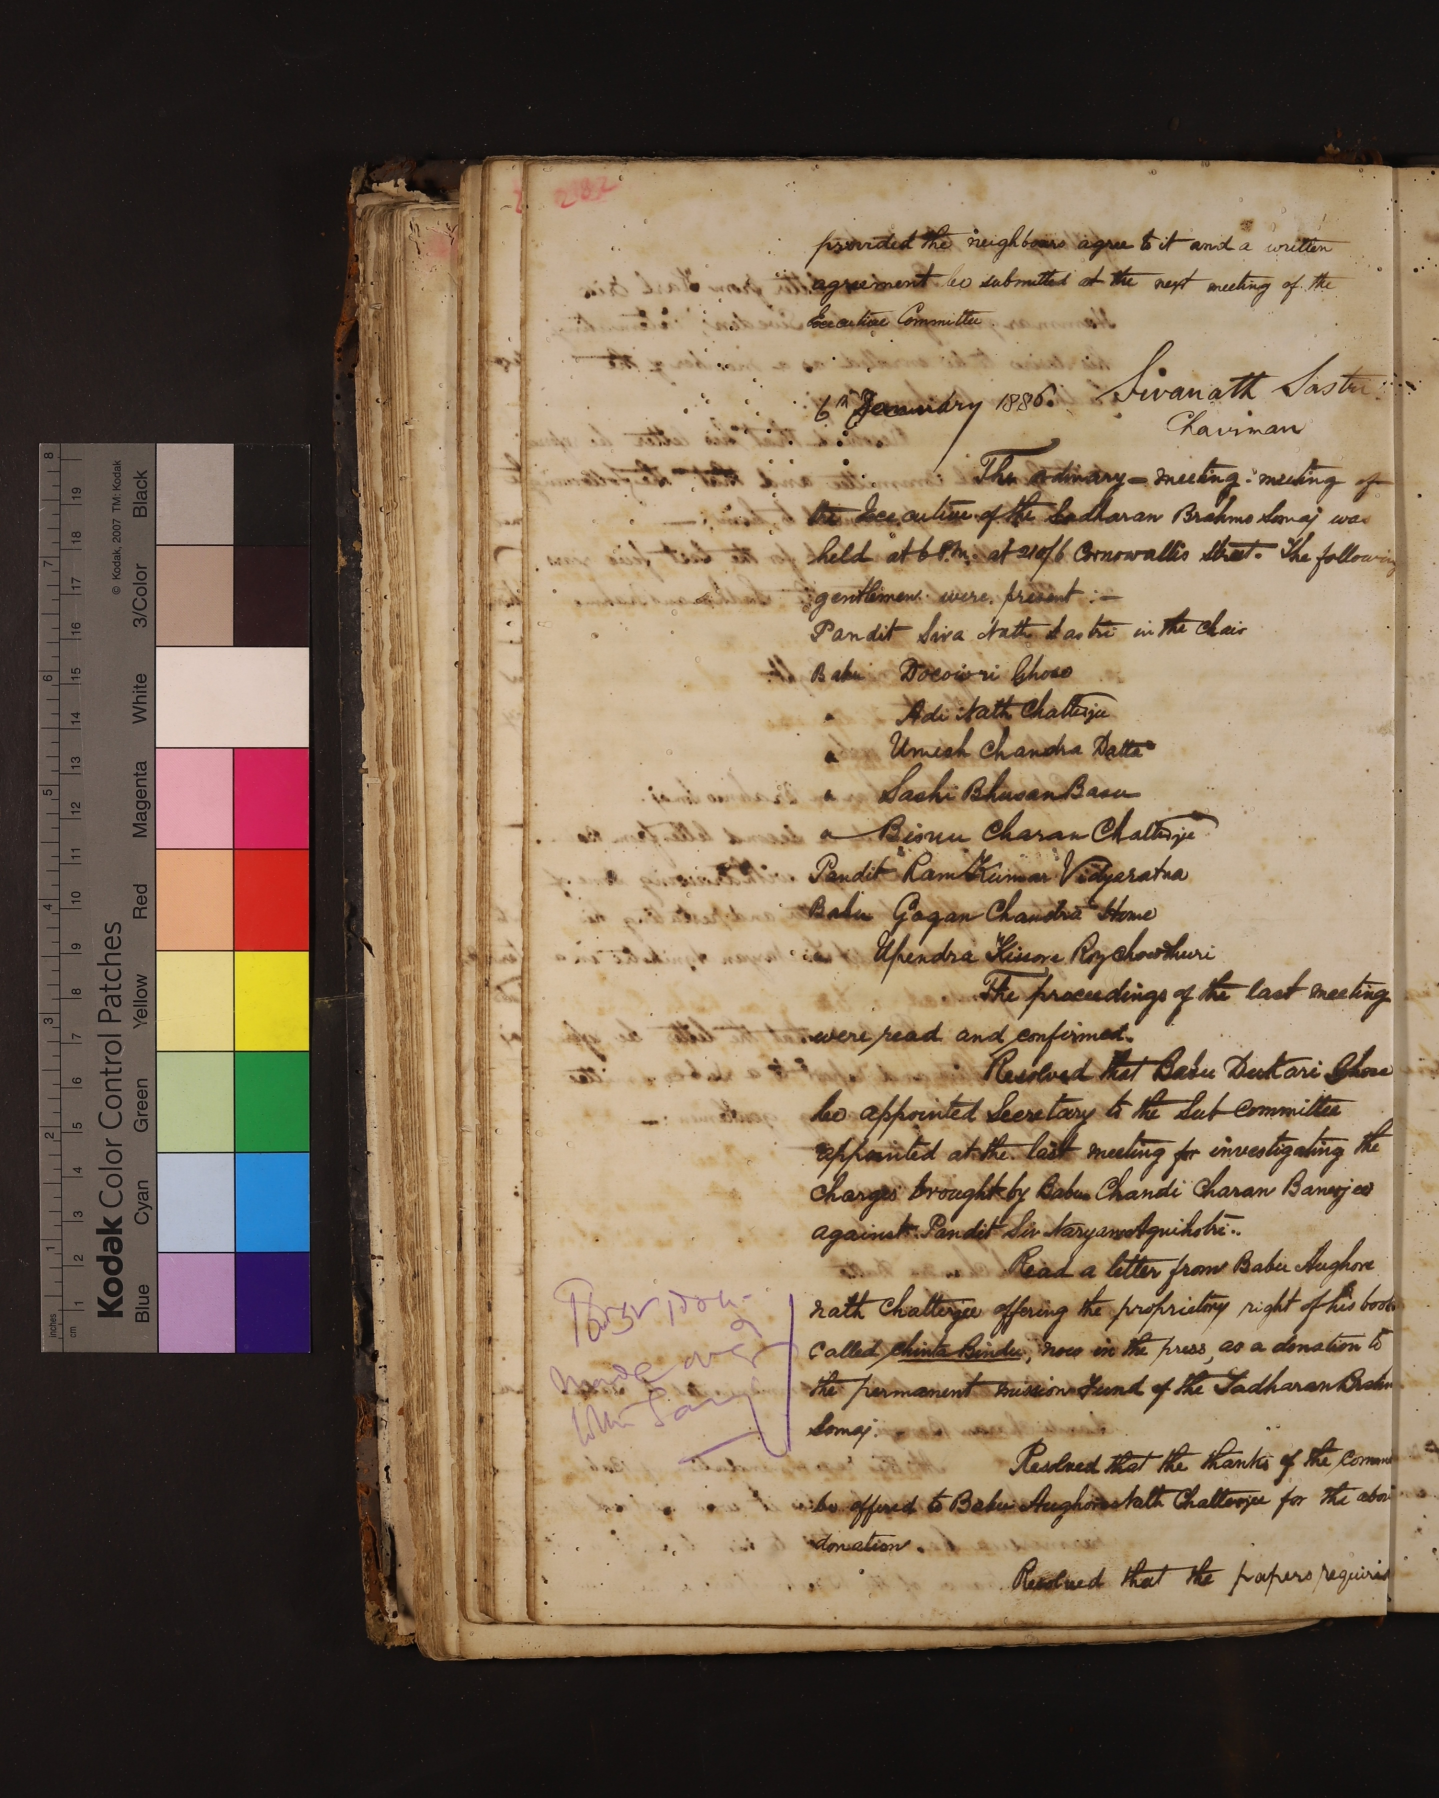 282
provided the neighbours agree to it and a written
agreement be submitted at the next meeting of the
Executive Committee
6th January 1886. Sivanath Sastri
Chairman
The ordinary = meeting meeting of
the Executive of the Sadharan Brahmo Somaj was
held at 6 P.M. at 210/6 Cornowallis Street. The following
gentlemen were present :—
Pandit Siva Nath Sastri in the Chair
Babu Docowri Ghose
" Adi Nath Chatterjee
" Umesh Chandra Datta
" Sashi Bhusan Basu
" Bisnu Charan Chatterjee
Pandit Ram Kumar Vidyaratna
Babu Gogan Chandra Home
" Upendra Kissore Roychowdhuri
The proceedings of the last meeting
were read and confirmed.
Resolved that Babu Duckari Ghose
be appointed Secretary to the Sub committee
appointed at the last meeting for investigating the
charges brought by Babu Chandi Charan Banerjee
against Pandit Siv Naryan Agnihotri.
Read a letter from Babu Aughore
nath Chatterjee offering the proprietory right of his book
called Chinta Bindu, now in the press, as a donation to
the permanent mission Fund of the Sadharan Brahmo
Somaj.
Resolved that the thanks of the
be offered to Babu Aughore Nath Chatterjee for the above
donation.
Resolved that the papers requiring
made over
Kodak Color Control Patches
© Kodak, 2007 TM: Kodak
Blue Cyan Green Yellow Red Magenta White 3/Color Black
inches 1 2 3 4 5 6 7 8
cm 1 2 3 4 5 6 7 8 9 10 11 12 13 14 15 16 17 18 19